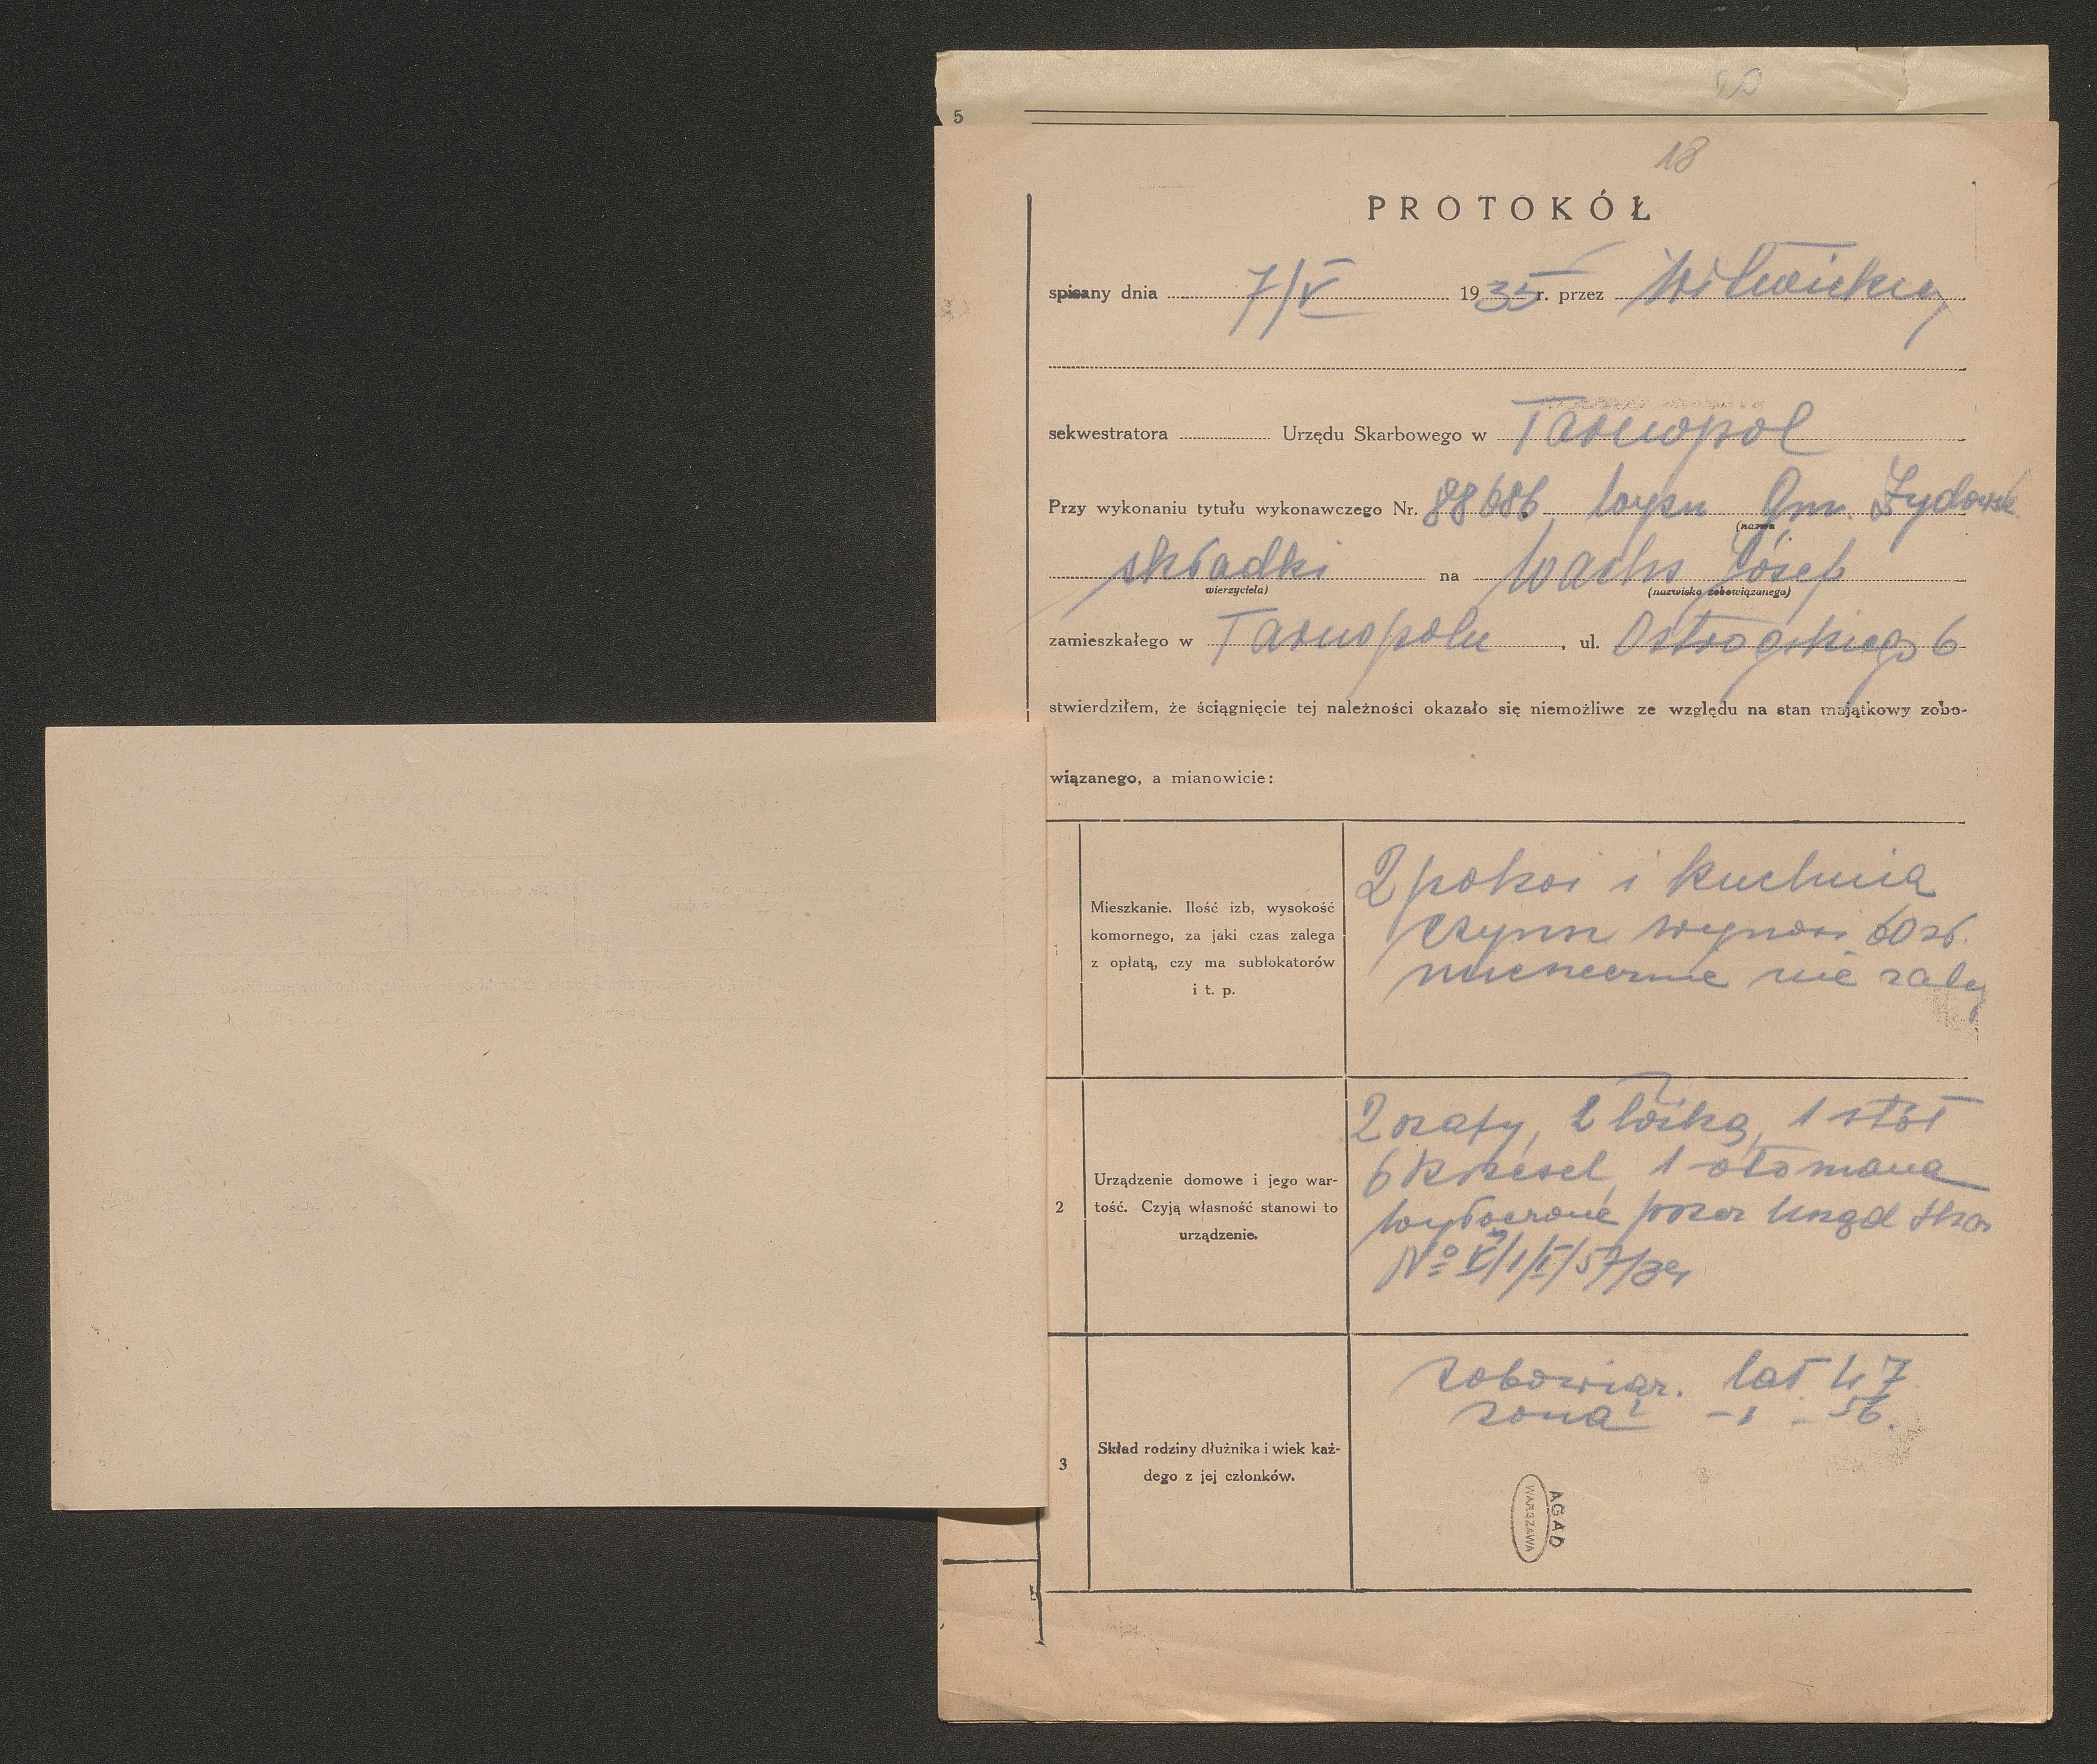 5
18
PROTOKÓŁ
spisany dnia 7/V 1935 r. przez
sekwestratora Urzędu Skarbowego w Tarnopol
Przy wykonaniu tytułu wykonawczego Nr. 88686 Gm. Żydowsk.
(nazwa
składki na Wachs Józef
wierzyciela) (nazwisko zobowiązanego)
zamieszkałego w Tarnopolu, ul. Ostrogskiego 6
stwierdziłem, że ściągnięcie tej należności okazało się niemożliwe ze względu na stan majątkowy zobo-
wiązanego, a mianowicie:
Mieszkanie. Ilość izb, wysokość
komornego, za jaki czas zalega
z opłatą, czy ma sublokatorów
i t. p.
2 pokoi i kuchnia
czynsz wynosi 60 zł.
miesięcznie nie zaleg
2
Urządzenie domowe i jego war-
tość. Czyją własność stanowi to
urządzenie.
2 szafy, 2 łóżka, 1 stół
6 krzeseł, 1 otomana
wyłączone przez Urząd Skar
№ V/1/II/57/34
3
Skład rodziny dłużnika i wiek każ-
dego z jej członków.
zobowiąz. lat 47
żona -„- 56.
AGAD
WARSZAWA